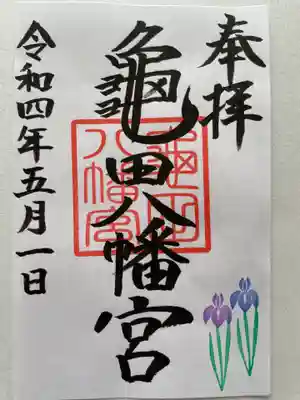 奉拝
龜田八幡宮
令和四年五月一日
亀田
八幡宮